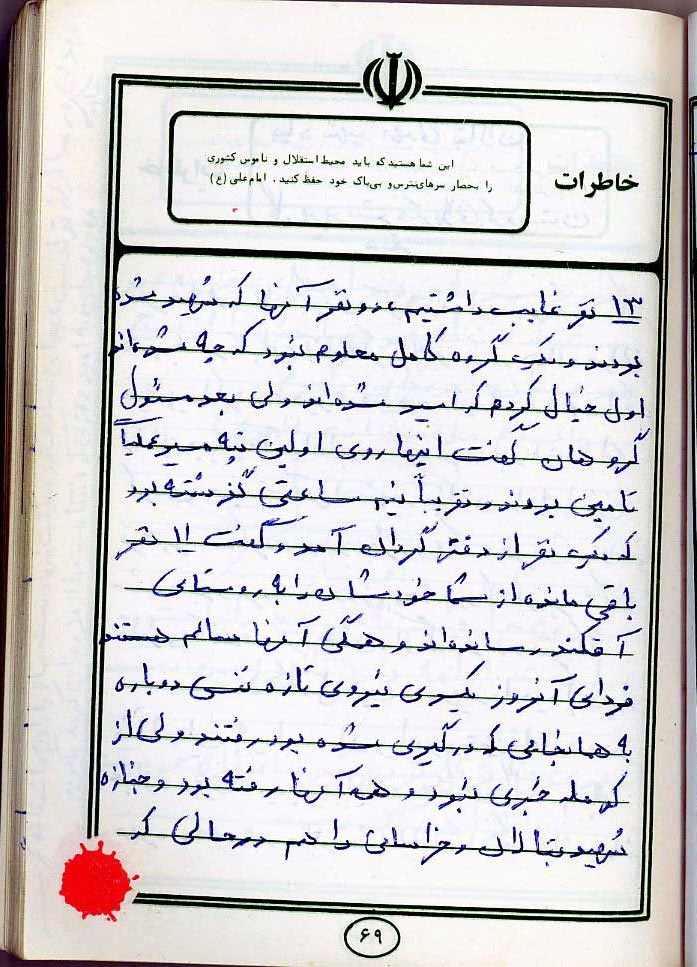 خاطرات
این شما هستید که باید محیط استقلال و ناموس کشوری
را بحصار سرهای نترس و بی‌باک خود حفظ کنید. امام علی (ع)
۱۳ نفر غایب داشتیم، دو نفر آنها که شهید شده
بودند و یک گروه کامل معلوم نبود که چه شده‌اند
اول خیال کردم که اسیر شده‌اند ولی بعد مسئول
گروهان گفت اینها روی اولین تپه مسیر عملیا
تامین بودند و تقریباً نیم ساعتی گذشته بود
که یک نفر از دفتر گردان آمد و گفت ۱۱ نفر
باقی مانده از شما خودشان را به روستای
رسانده‌اند و همگی آنها سالم هستند
فردای آنروز یکسری نیروی تازه نفس دوباره
به همانجایی که درگیری شده بود رفتند ولی از
کومله خبری نبود و همه آنها رفته بود و جنازه
شهید بتالان و خراسانی را هم در حالی که
۶۹